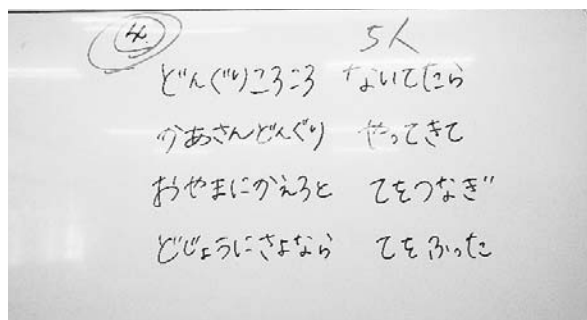 4. 5人
どんぐりころころ ないてたら
かあさんどんぐり やってきて
おやまにかえろと てをつなぎ
どじょうにさよなら てをふった